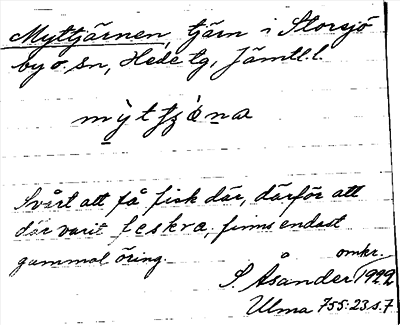 Myttjärnen, tjärn i Storsjö
by o. sn, Hede tg, Jämtl. l.
Svårt att få fisk där, därför att
där varit feskra, finns endast
gammal öring.
omkr.
S. Åsander 1922
Ulma 755:23.s.7